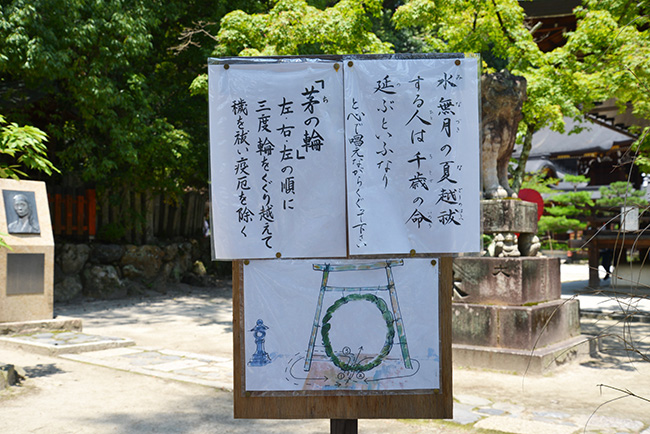 水無月の夏越祓
する人は千歳の命
延ぶといふなり
と心で唱えながらくぐって下さい
「茅の輪」
左右左の順に
三度輪をくぐり越えて
穢を祓い疫厄を除く